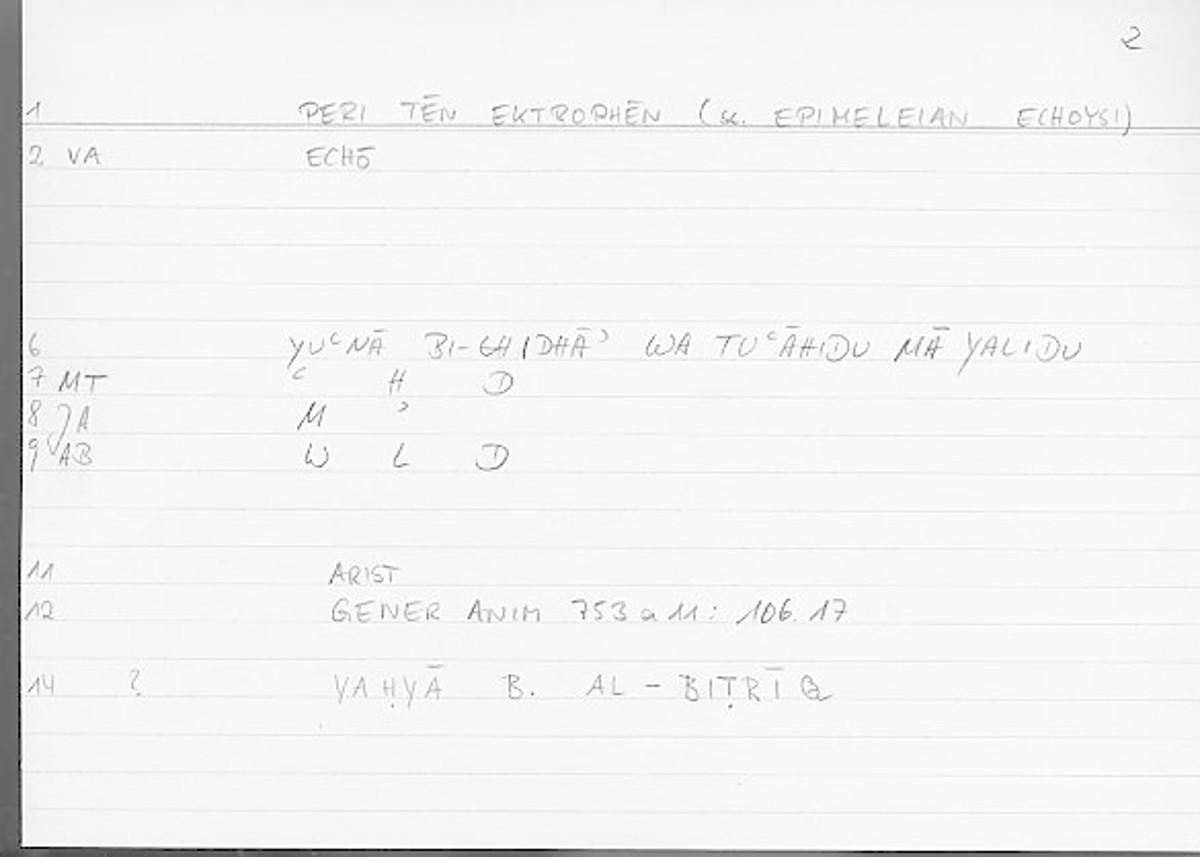 2
1 PERI TĒN EKTROPHĒN (sc. EPIMELEIAN ECHOYSI)
2 VA ECHŌ
6 YUʿNĀ BI-GHIDHĀʾ WA TUʿĀHIDU MĀ YALIDU
7 MT ʿ H D
8 JA M ʾ
9 VAB W L D
11 ARIST
12 GENER ANIM 753 a 11: 106.17
14 ? YAḤYĀ B. AL-BIṬRĪQ